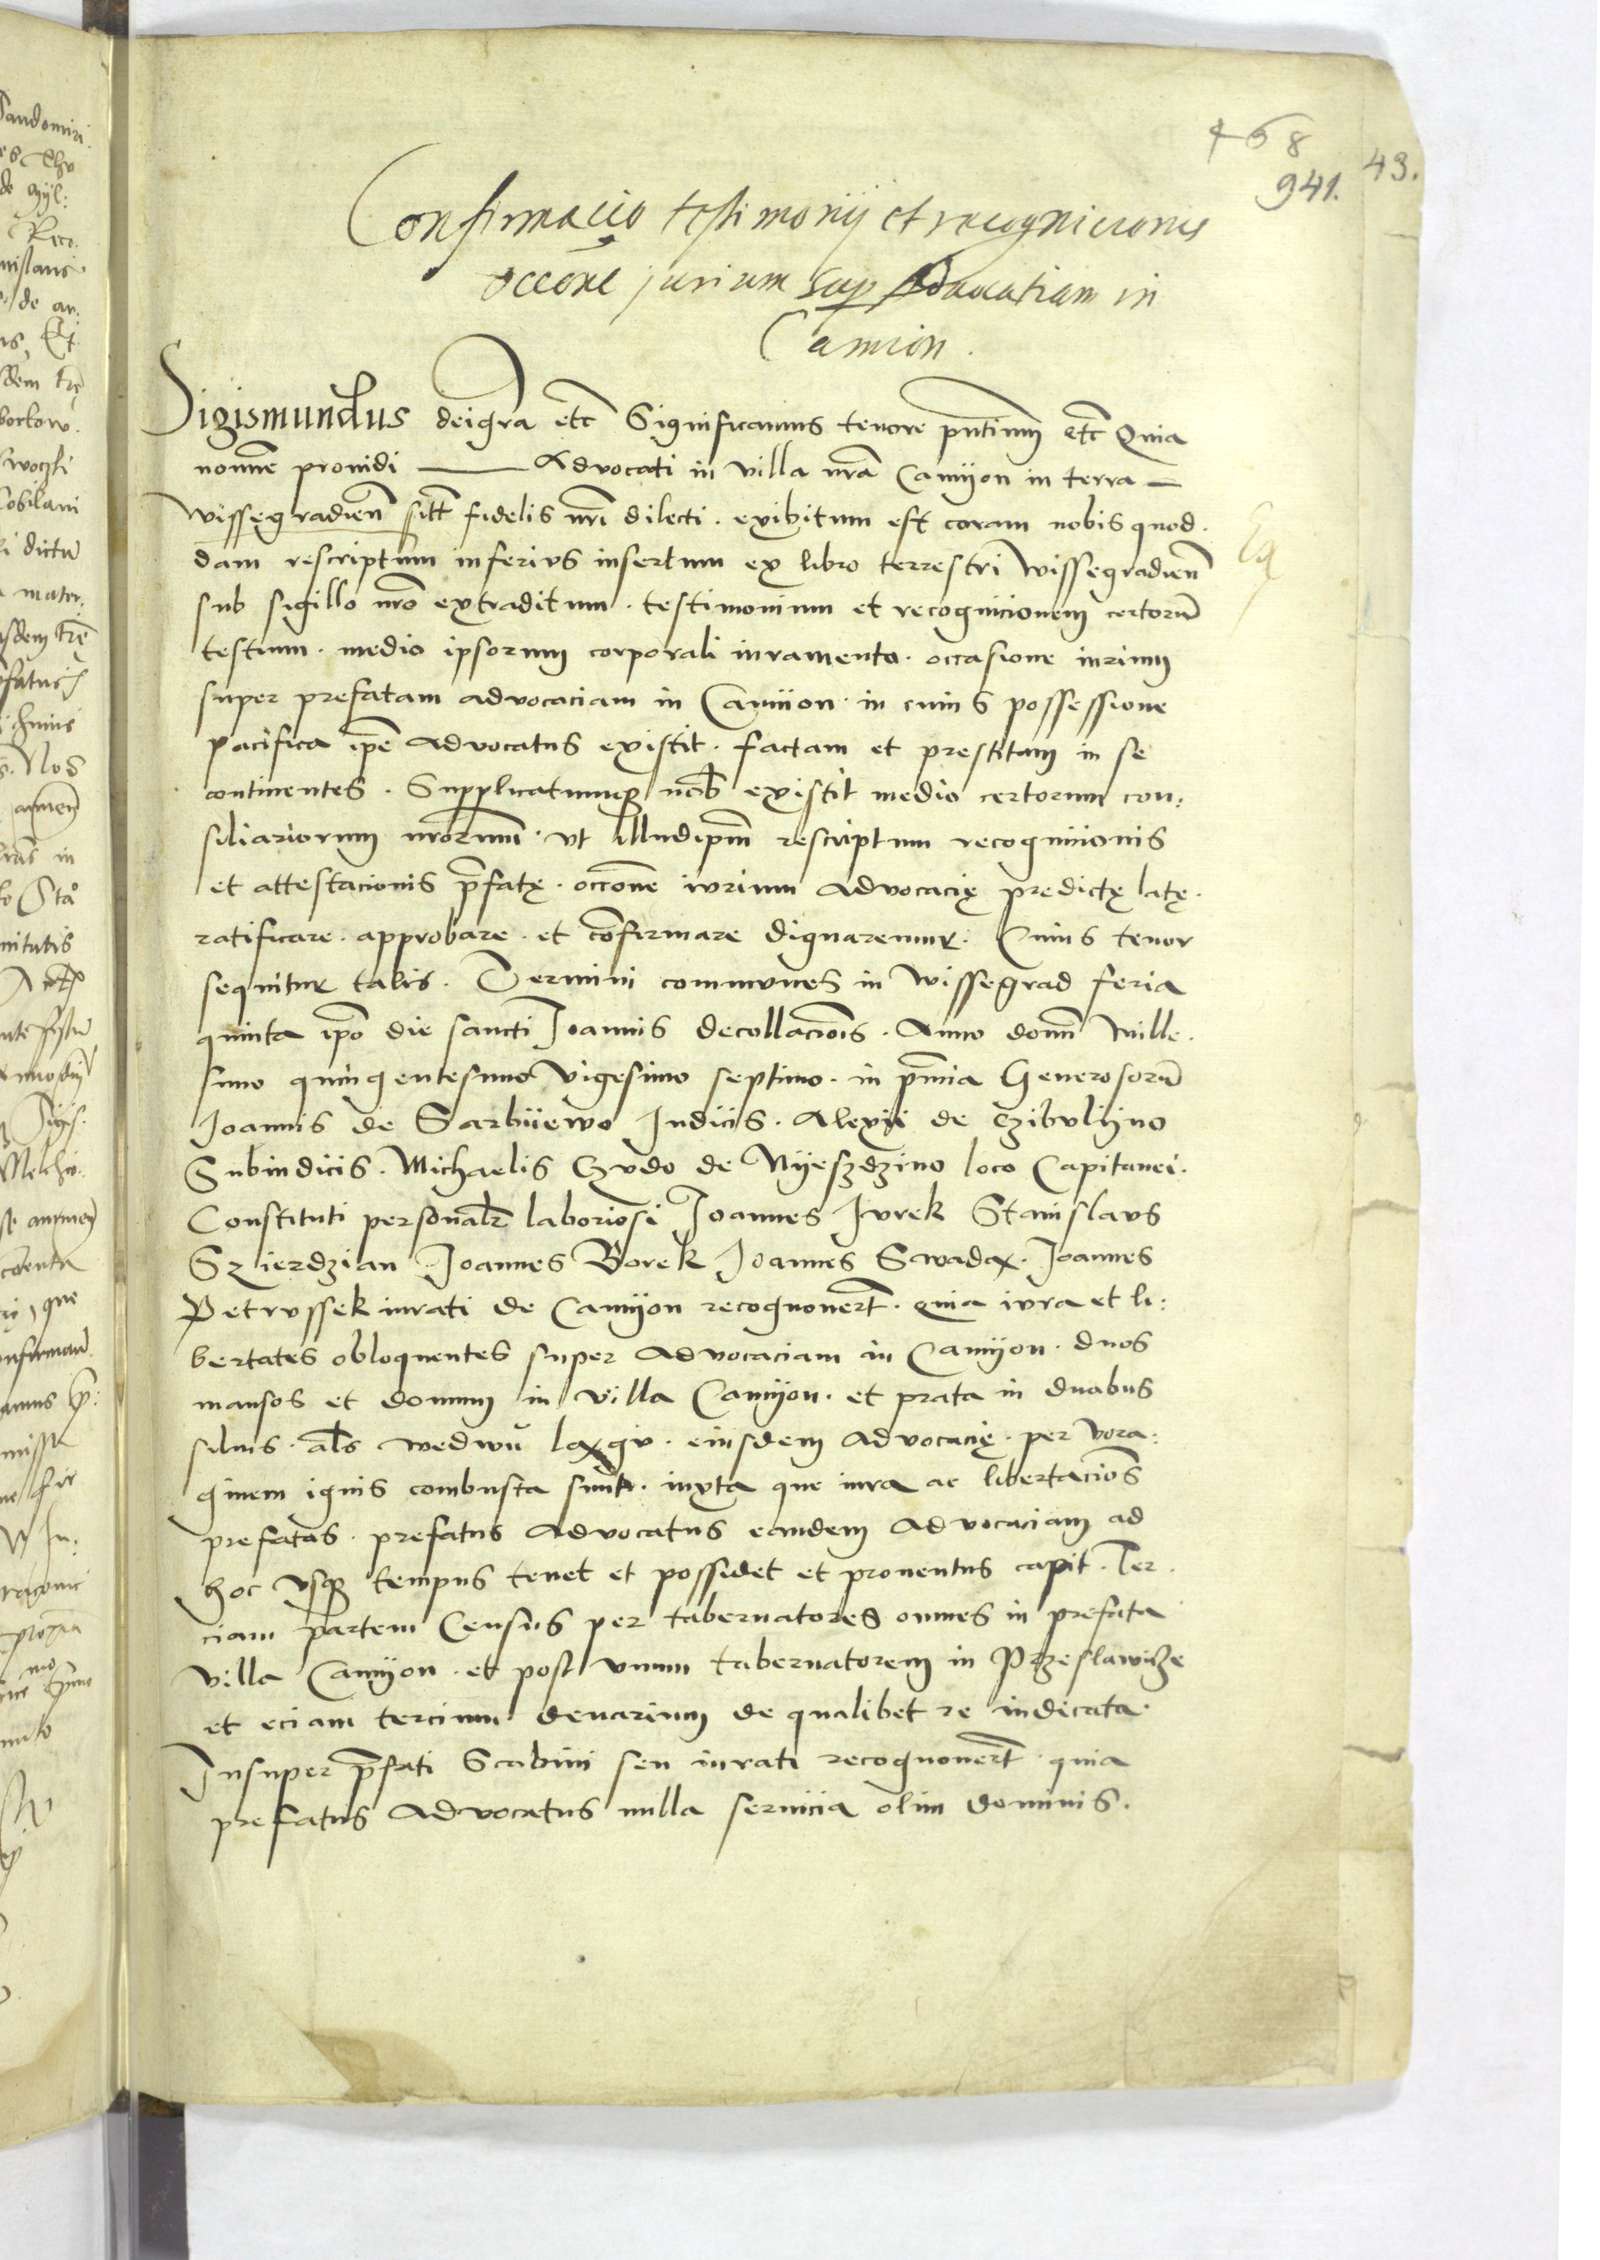 468
941.
43.
Confirmacio testimonij et recognicionis
occõne jurium sup Advocatiam in
Camion.
Sigismundus deigra etc Significamus tenore pntium etc Quia
nomine providi —— Advocati in villa nra Camyon in terra —
wissegradien sitt fidelis nri dilecti. exibitum est coram nobis quod.
dam rescriptum inferius insertum ex libro terrestri wissegradien
sub sigillo nro extraditum. testimonium et recognicionem certorũ
testium. medio ipsorum corporali iuramento. occasione iurium
super prefatam advocaciam in Camiion. in cuius possessione
pacifica ipe Advocatus existit. factam et prestitam in se
continentes. Supplicatumq nob existit medio certorum con:
siliariorum nrorum. ut illudipm rescriptum recognicionis
et attestacionis p̄fatę. occone iurium advocacię predictę latę.
ratificare. approbare. et cõfirmare dignaremur. Cuius tenor
sequitur talis. Termini communes in wissegrad feria
quinta ipo die sancti Joannis decollacionis. Anno domi mille.
simo quingentesimo vigesimo septimo. in pñtia Generosorũ
Joannis de Sarbiiewo Judicis. Alexii de Czibulijno
Subiudicis. Michaelis Gvdo de Nyeszdzino loco Capitanei.
Constituti personalr laboriosi Joannes Jvrek Stanislaus
Szierdzian Joannes Borek Joannes Swada. Joannes
Petrvssek iurati de Camyon recognovert. quia iura et li:
bertates obloquentes super Advocaciam in Camyon. duos
mansos et domum in villa Camyon. et prata in duabus
silvis. als wedwu lągv. eiusdem Advocacię. per vora:
ginem ignis combusta sunt. iuxta que iura ac libertaciõs
prefatas. prefatus Advocatus eandem Advocaciam ad
hoc usq tempus tenet et possidet et proventus capit. Ter.
ciam partem Census per tabernatores omnes in prefata
villa Camyon. et post unum tabernatorem in Przeslawicze
et eciam tercium denarium de qualibet re iudicata.
Insuper p̄fati Scabini seu iurati recognovert. quia
prefatus Advocatus nulla servicia olim dominis.